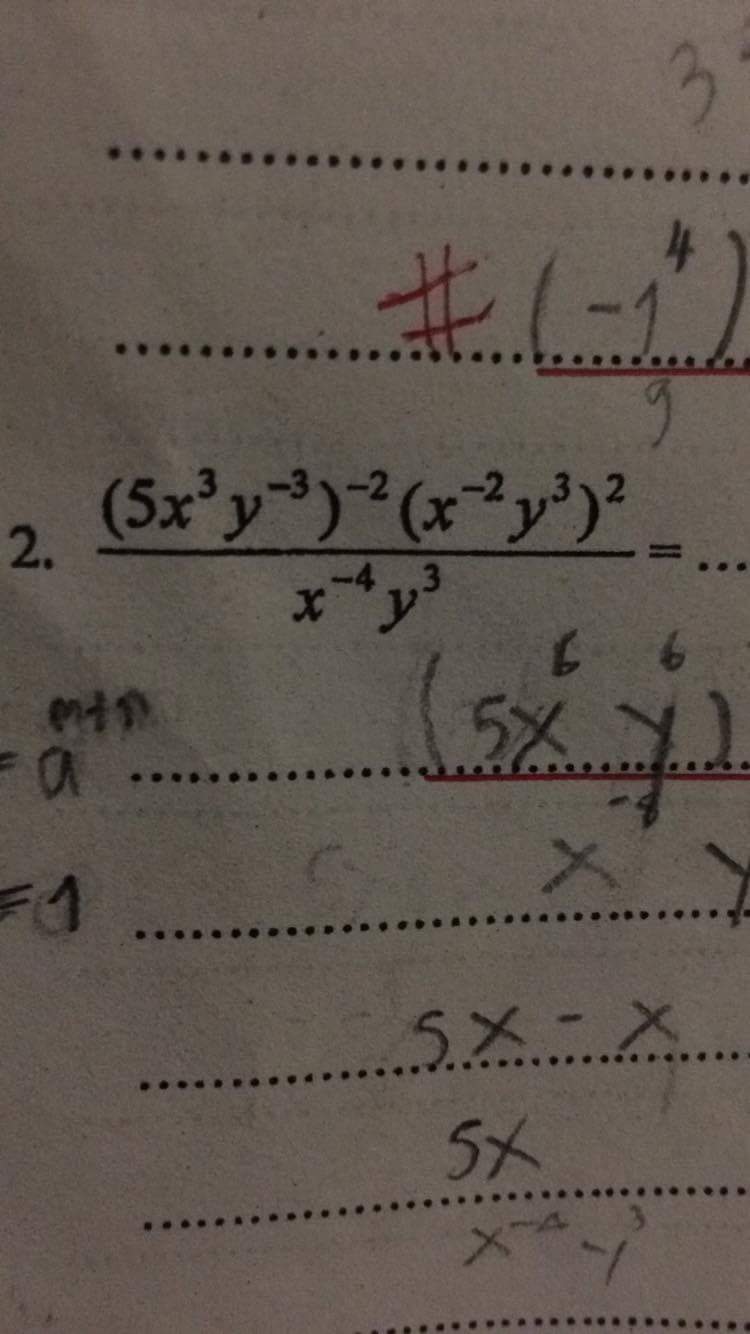 3
# (-1⁴)
9
2. (5x³y⁻³)⁻²(x⁻²y³)² / x⁻⁴y³ = ...
= a^(m+n) (5x⁶ y⁶)
x⁻⁴ y
= 1
5x - x
5x
x⁻⁴ y³